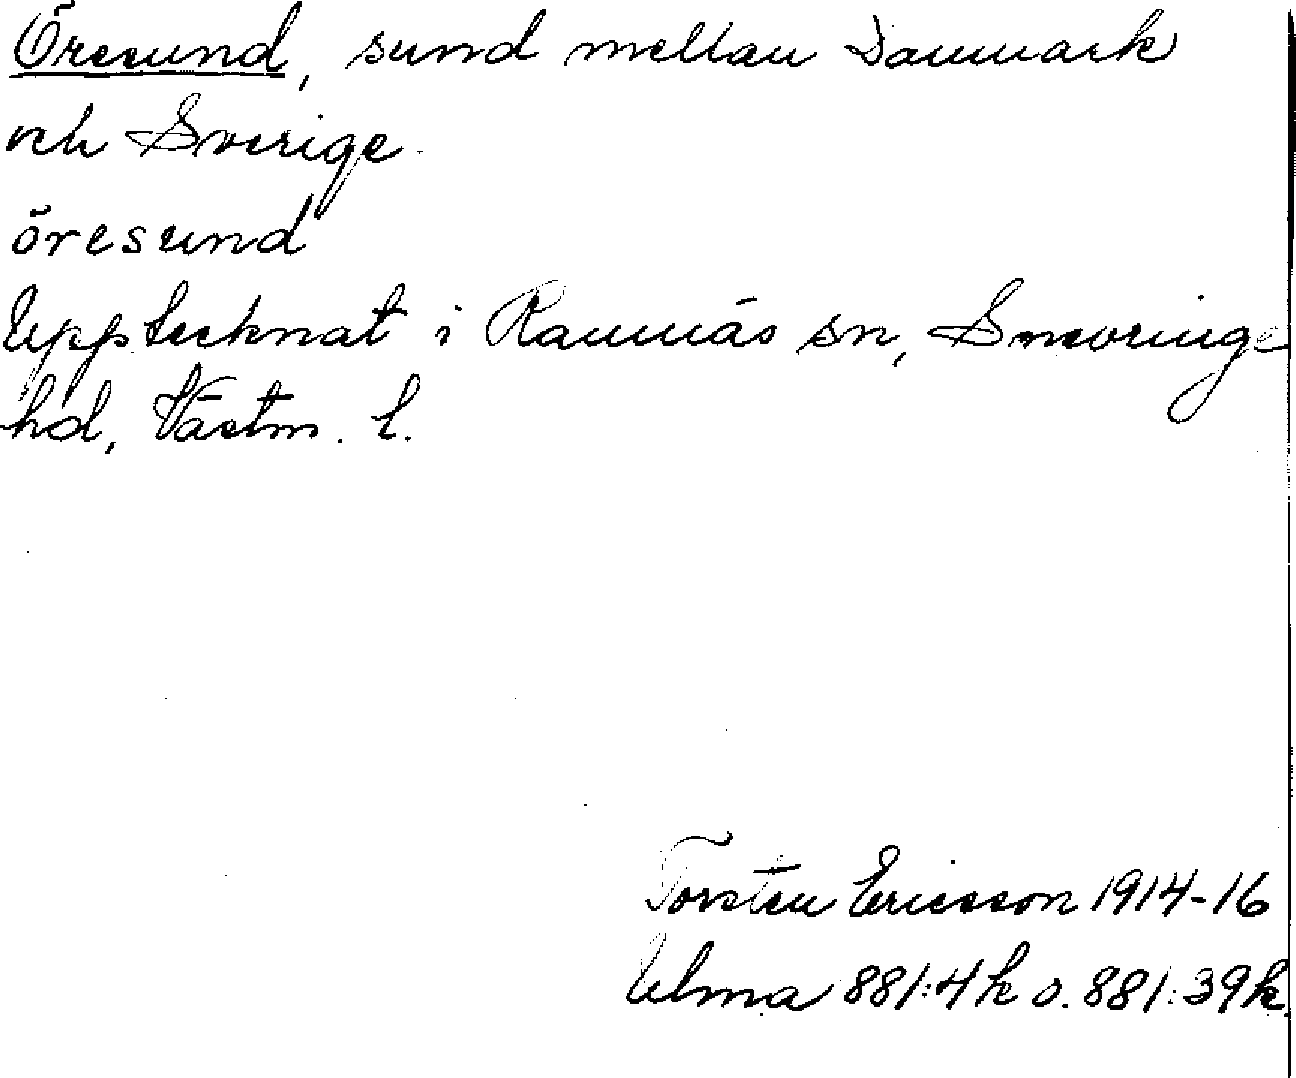 Öresund, sund mellan Danmark
och Sverige.
öresund
Upptecknat i Ramnäs sn, Snevringe
hd, Västm. l.
Torsten Ericsson 1914-16
Ulma 881:4k o. 881:39k.